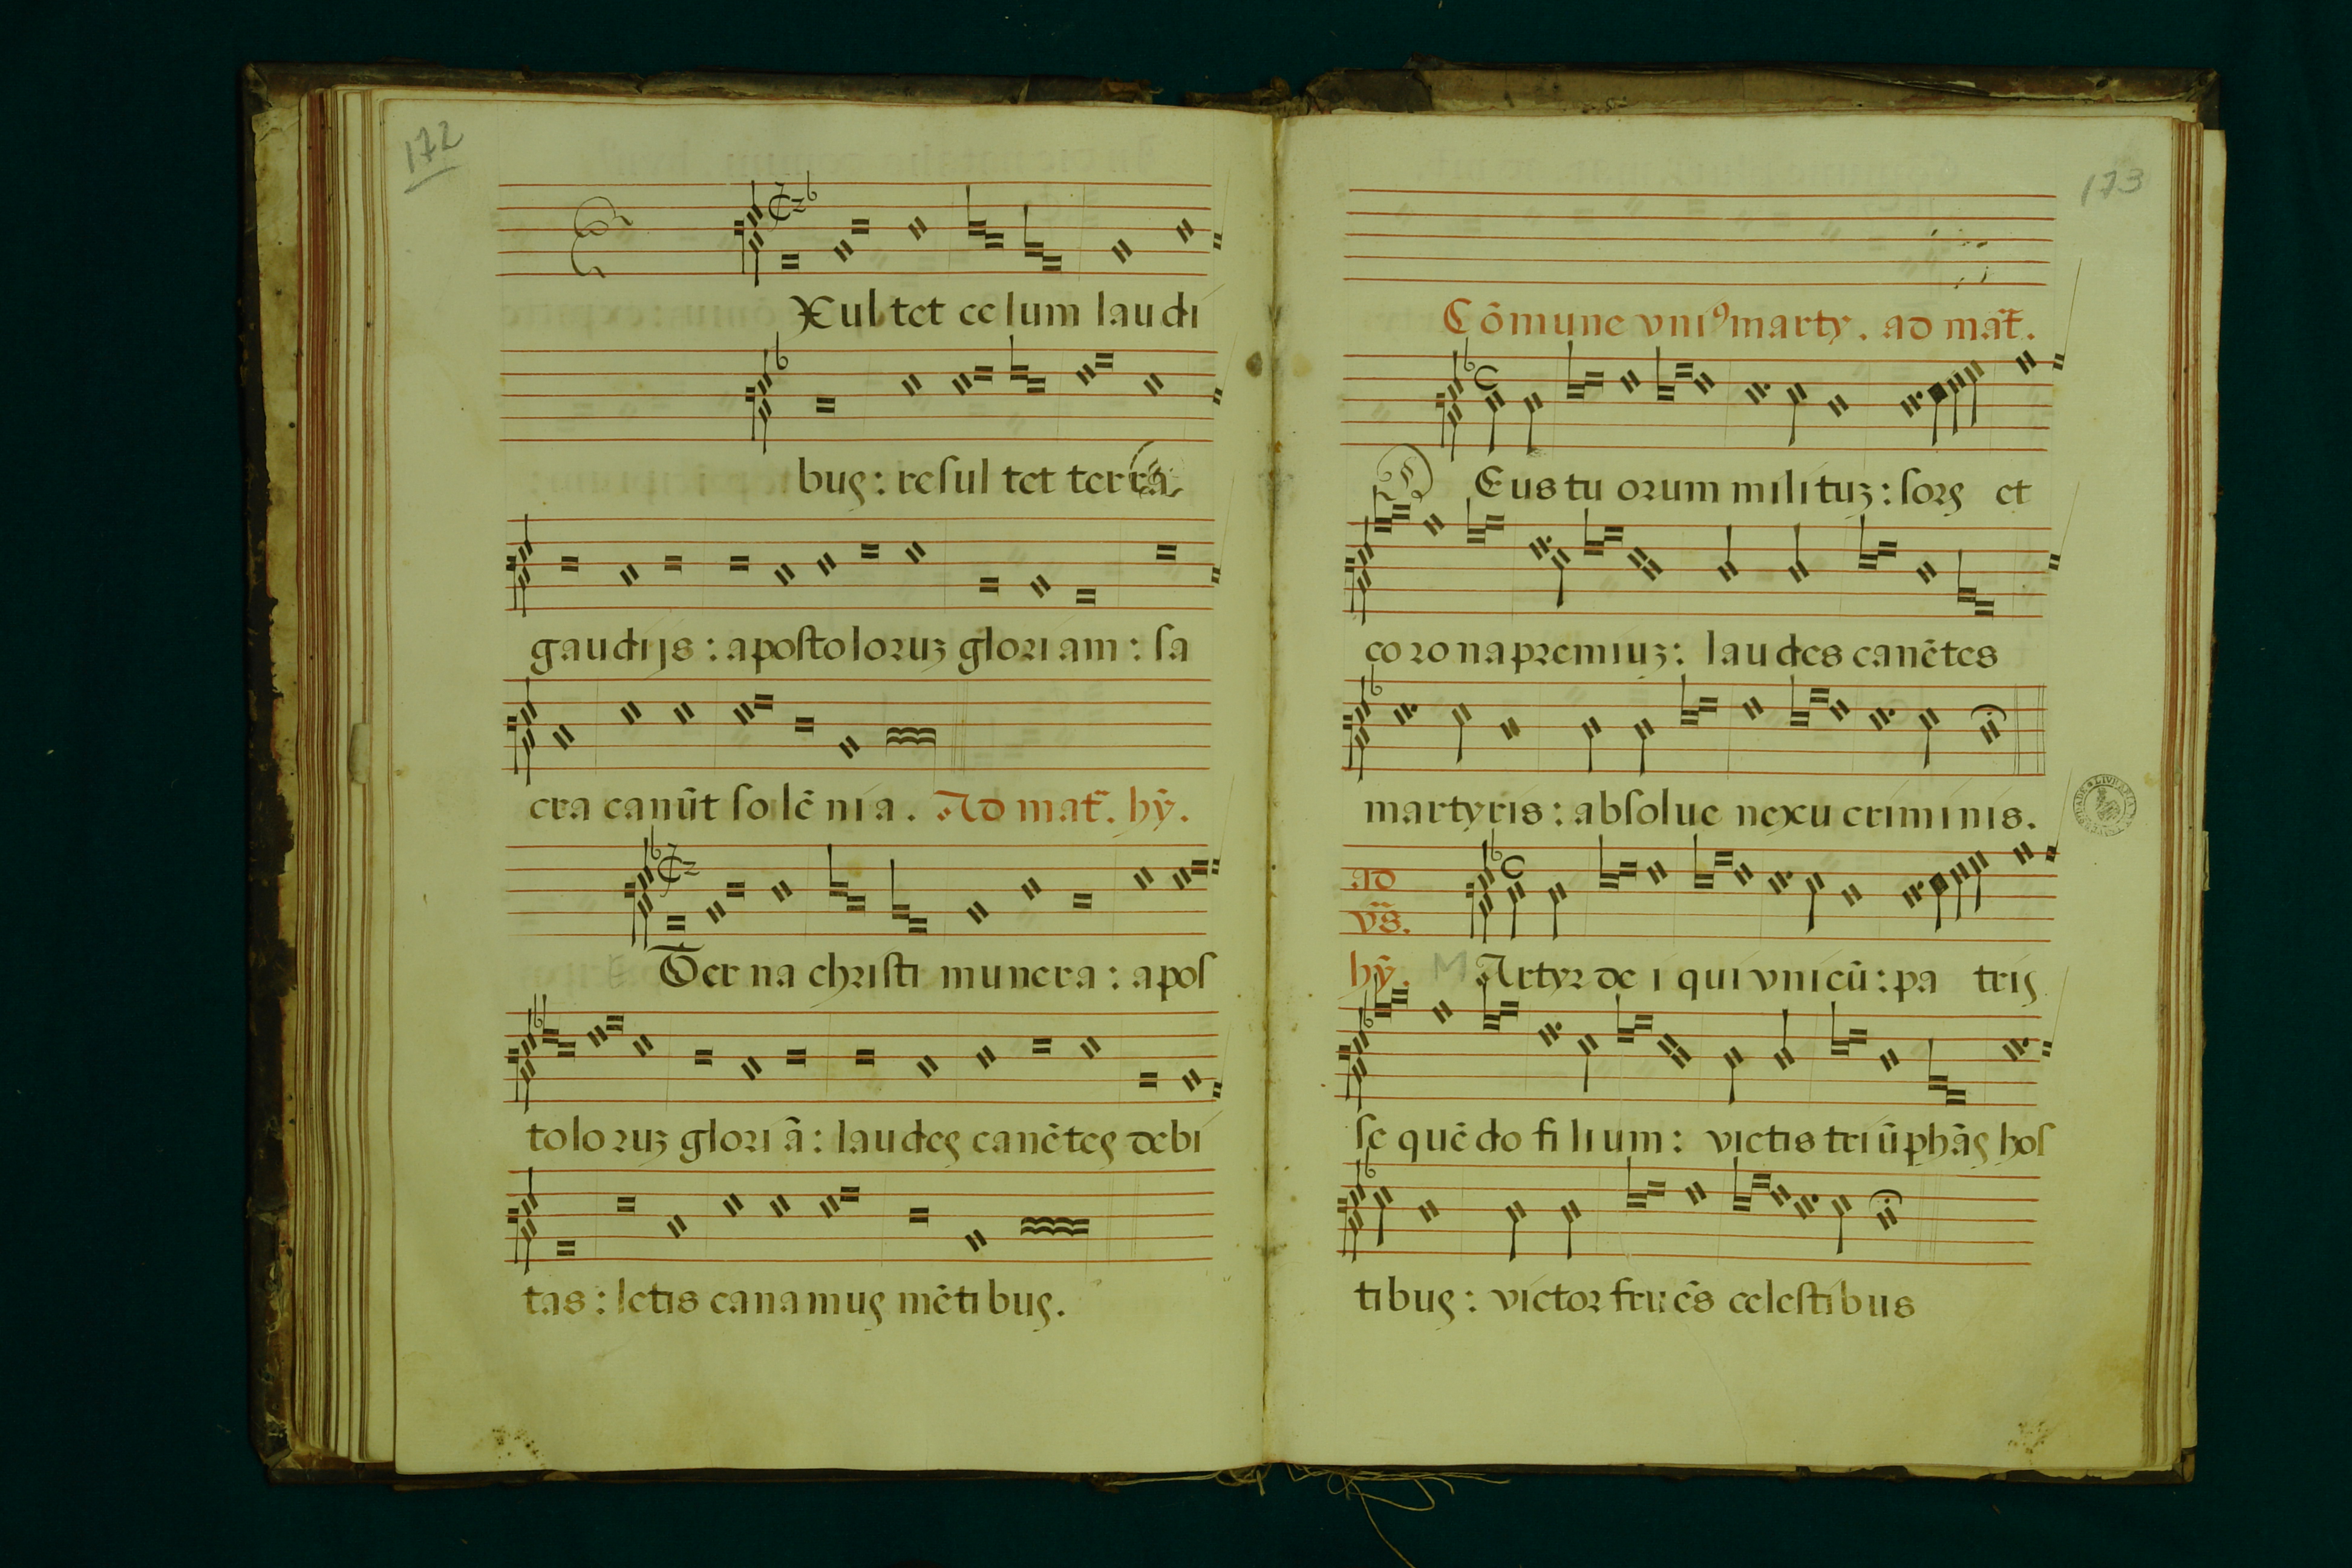 172
Xul tet ce lum lau di
bus : re ſul tet ter ra
gau di js : a poſto lo ruꝫ glo ri am : ſa
cra ca nūt ſo lē ni a . Ad mat̃. hȳ.
E Ter na chriſti mu ne ra : a poſ
to lo ruꝫ glo ri ã : lau des ca nē tes de bi
tas : le tis ca na mus mē ti bus.
173
Cōmune vniꝰ marty . ad mat̃.
D Eus tu orum mi li tuꝫ : ſors et
co ro na pre mi uꝫ : lau des ca nē tes
mar ty ris : ab ſol ue ne xu cri mi nis.
ad
vs̃.
hȳ. M Ar tyr de i qui vni cū : pa tris
ſe quē do fi li um : vic tis tri ū phãs hoſ
ti bus : vic tor fru ēs ce leſti bus
LIVRARIA